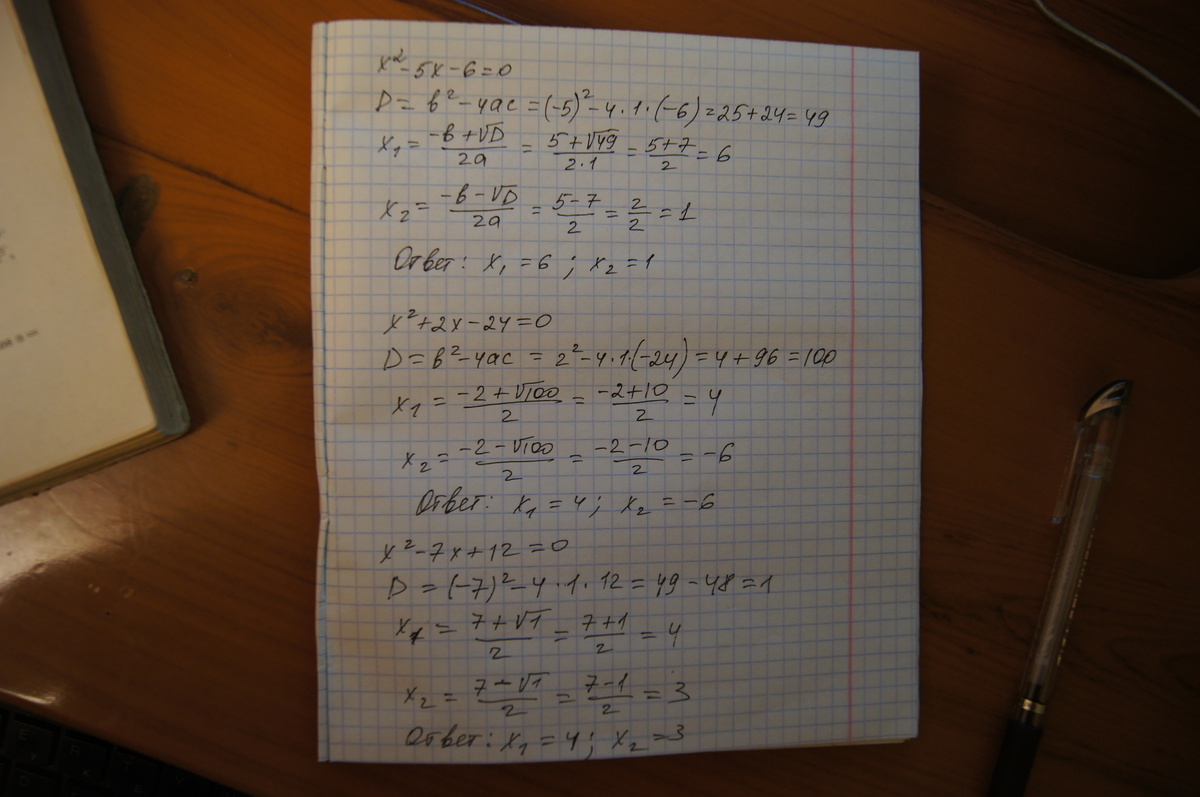 x²-5x-6=0
D= в²-4ac =(-5)²-4·1·(-6)=25+24=49
x₁= (-в+√D)/2a = (5+√49)/2·1 = (5+7)/2 = 6
x₂= (-в-√D)/2a = (5-7)/2 = 2/2 = 1
Ответ: x₁=6 ; x₂=1
x²+2x-24=0
D=в²-4ac = 2²-4·1·(-24)=4+96=100
x₁ = (-2+√100)/2 = (-2+10)/2 = 4
x₂= (-2-√100)/2 = (-2-10)/2 = -6
Ответ: x₁=4; x₂=-6
x²-7x+12=0
D = (-7)²-4·1·12=49-48=1
x₁ = (7+√1)/2 = (7+1)/2 = 4
x₂ = (7-√1)/2 = (7-1)/2 = 3
Ответ: x₁=4; x₂=3